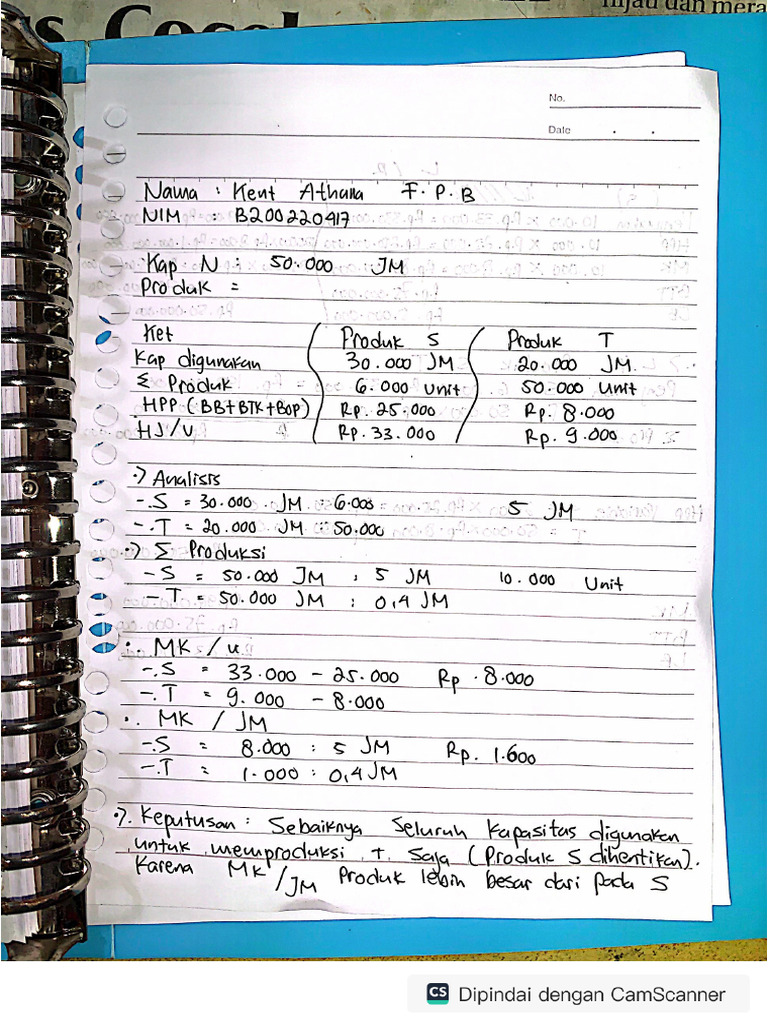 hijau dan mera
s Cocok
No.
Date . .
Nama : Kent Athalla F. P. B
NIM : B200220417
Kap N : 50.000 JM
Produk =
Ket Produk S Produk T
Kap digunakan 30.000 JM 20.000 JM
Σ Produk 6.000 Unit 50.000 Unit
HPP (BB+BTK+BOP) Rp. 25.000 Rp. 8.000
HJ/U Rp. 33.000 Rp. 9.000
·) Analisis
-. S = 30.000 JM : 6.000 5 JM
-. T = 20.000 JM : 50.000
·) Σ Produksi
- S = 50.000 JM : 5 JM 10.000 Unit
-. T = 50.000 JM : 0,4 JM
·. MK / u
-. S = 33.000 - 25.000 Rp. 8.000
-. T = 9.000 - 8.000
·. MK / JM
-. S = 8.000 : 5 JM Rp. 1.600
-. T = 1.000 : 0,4 JM
·). Keputusan : Sebaiknya Seluruh Kapasitas digunakan
untuk memproduksi T saja (Produk S dihentikan).
Karena MK/JM Produk lebih besar dari pada S
CS Dipindai dengan CamScanner